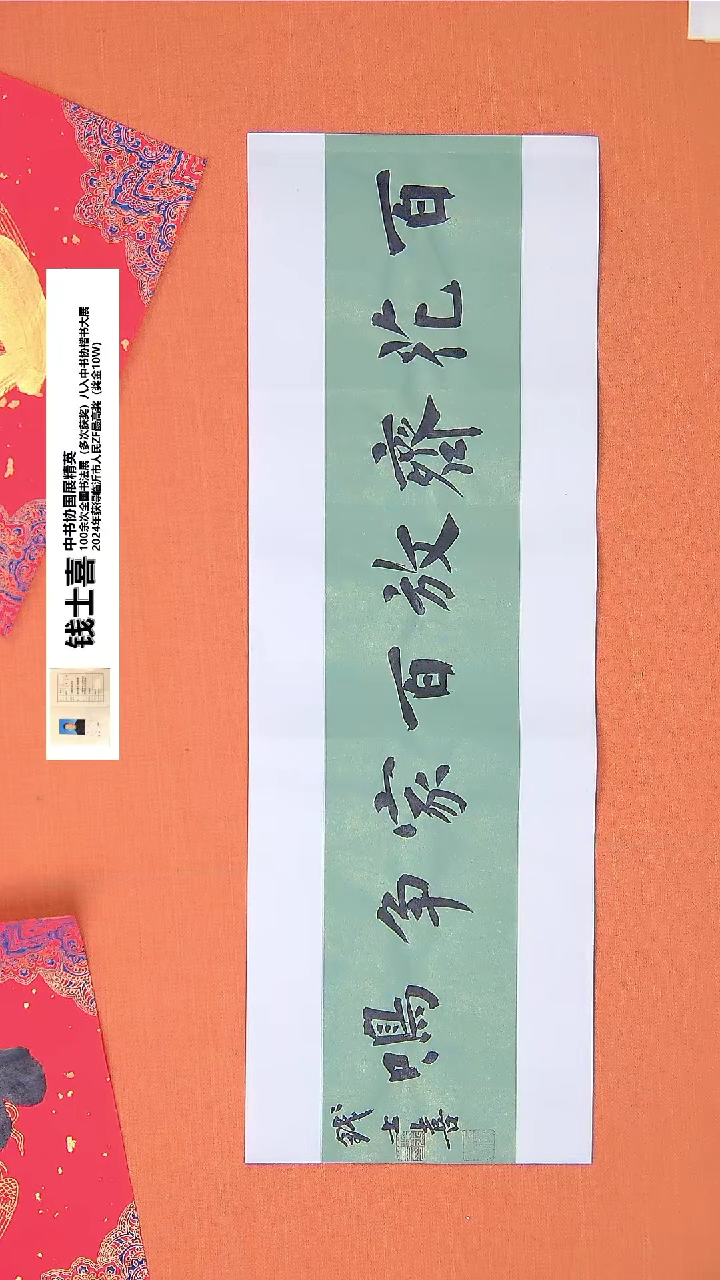 百花齊放百家争鳴
錢士喜
钱士喜
中书协国展精英
100余次全国书法展（多次获奖）八入中书协楷书大展
2024年获得临沂市人民ZF最高奖（奖金10W）